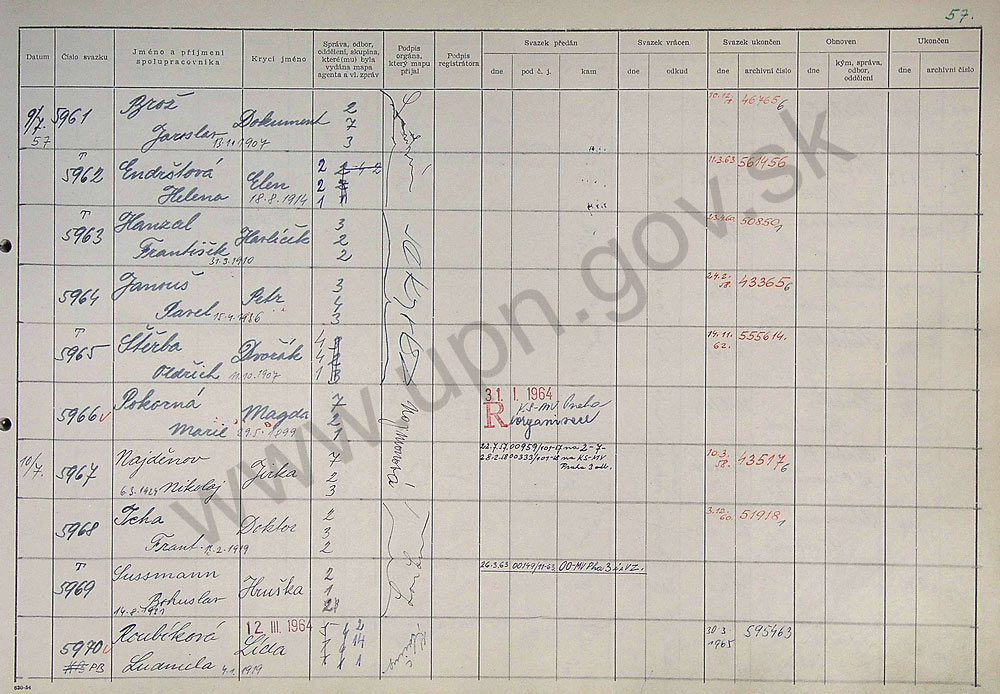 57.
Datum
Číslo svazku
Jméno a příjmení
spolupracovníka
Krycí jméno
Správa, odbor,
oddělení, skupina,
které(mu) byla
vydána mapa
agenta a vl. zpráv
Podpis
orgána,
který mapu
přijal
Podpis
registrátora
Svazek předán
dne
pod č. j.
kam
Svazek vrácen
dne
odkud
Svazek ukončen
dne
archivní číslo
Obnoven
dne
kým, správa,
odbor,
oddělení
Ukončen
dne
archivní číslo
9/7. 57
5961
Brož
Jaroslav 13.10.1907
Dokument
2
7
3
46765 6
T
5962
Endrštová
Helena
Elen
18.8.1914
2
2
1
11.3.63 561456
T
5963
Hanzal
František 31.3.1910
Havlíček
3
2
2
50850 1
5964
Janouš
Pavel 15.4.1936
Petr
3
4
3
43365 6
T
5965
Štěrba
Oldřich 11.10.1907
Dvořák
4
4
1
14.11.
62.
555614.
5966 v
Pokorná
Marie 29.5.1899
Magda
7
2
1
31. I. 1964
R
KS-MV Praha
10/7.
5967
Najděnov
6.3.1924 Nikolaj
Jirka
7
2
3
22.7.57 00959/
28.2.58 00333/
na 2-7-
na KS-MV
Praha 3 odb.
10.3.
58.
43517 6
5968
Tcha
Frant. 12.2.1919
Doktor
2
3
2
3.12.
60.
51918 1
T
5969
Sussmann
Bohuslav
14.8.1921
Hruška
2
1
26.3.63 00149/11-63 OO-MV Pha 3
5970 v
PB
Roubíková
Ludmila 4.1.1919
12. III. 1964
Lída
30.3
1965
595463
530-54
www.upn.gov.sk